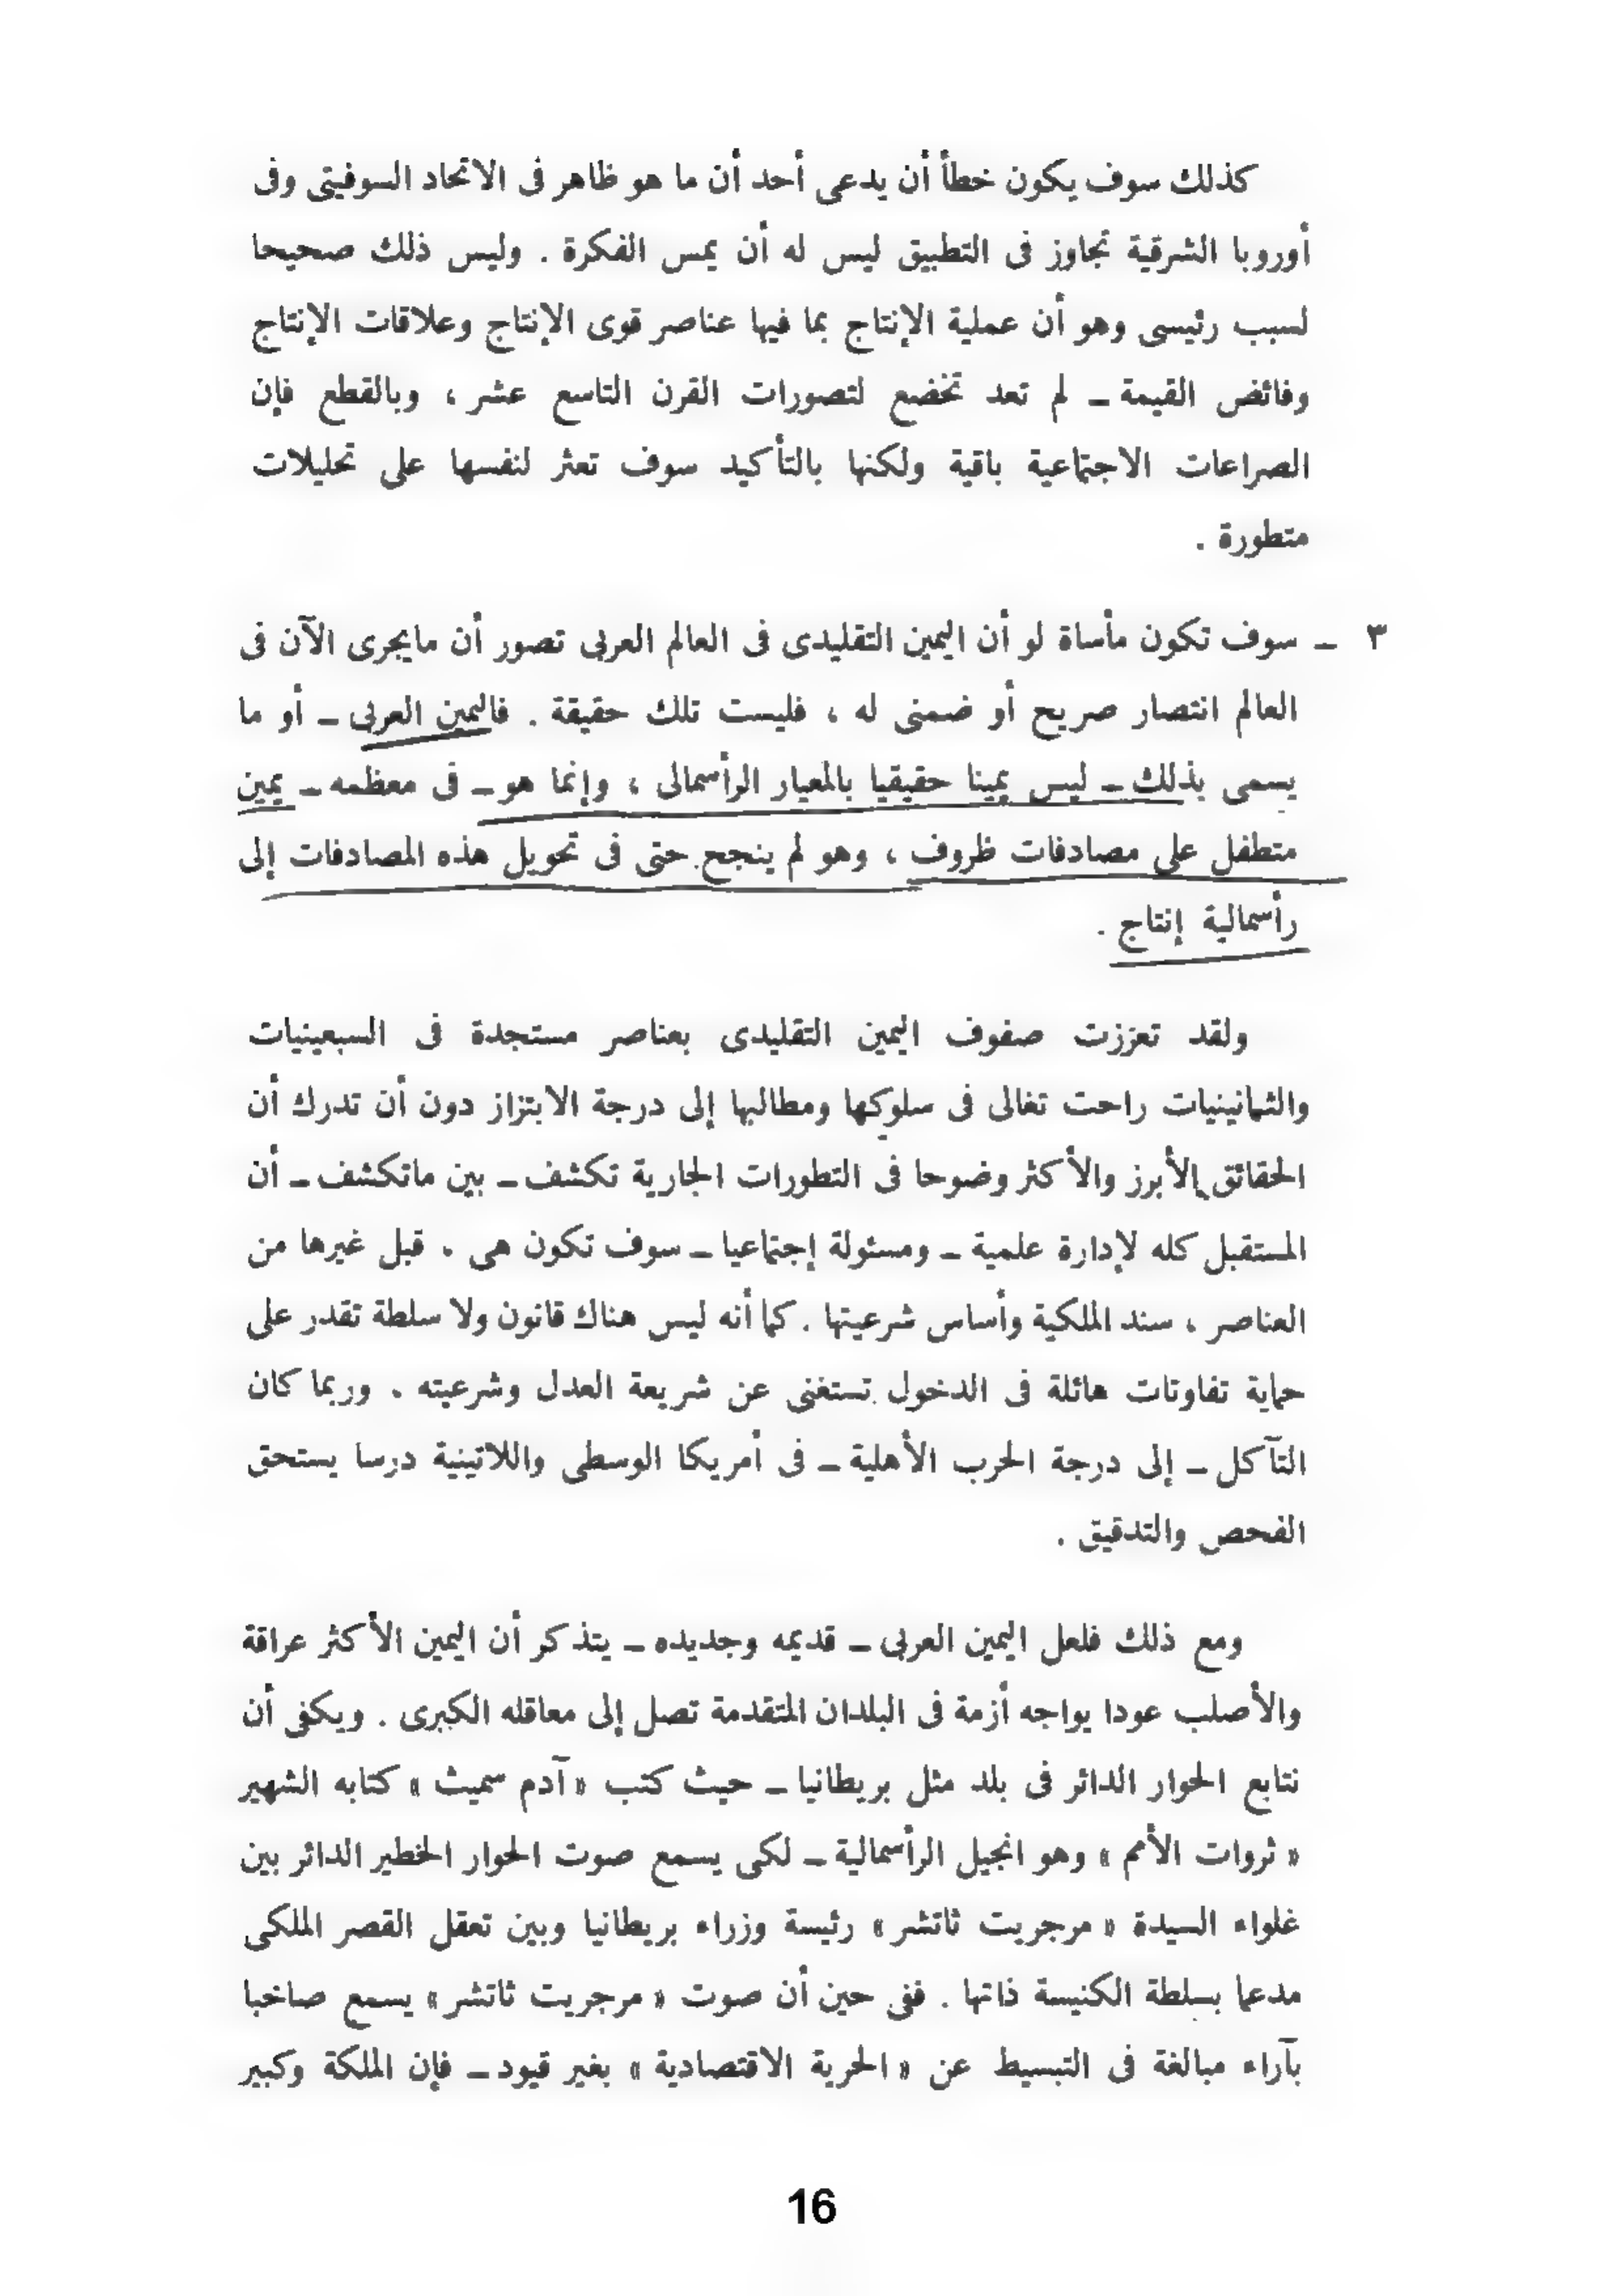 كذلك سوف يكون خطأ أن يدعى أحد أن ما هو ظاهر فى الاتحاد السوفيتى وفى
أوروبا الشرقية تجاوز فى التطبيق ليس له أن يمس الفكرة . وليس ذلك صحيحا
لسبب رئيسى وهو أن عملية الإنتاج بما فيها عناصر قوى الإنتاج وعلاقات الإنتاج
وفائض القيمة ـ لم تعد تخضع لتصورات القرن التاسع عشر ، وبالقطع فإن
الصراعات الاجتماعية باقية ولكنها بالتأكيد سوف تعثر لنفسها على تحليلات
متطورة .
٣ ـ سوف تكون مأساة لو أن اليمين التقليدى فى العالم العربى تصور أن مايجرى الآن فى
العالم انتصار صريح أو ضمنى له ، فليست تلك حقيقة . فاليمين العربى ـ أو ما
يسمى بذلك ـ ليس يمينا حقيقيا بالمعيار الرأسمالى ، وإنما هو ـ فى معظمه ـ يمين
متطفل على مصادفات ظروف ، وهو لم ينجح حتى فى تحويل هذه المصادفات إلى
رأسمالية إنتاج .
ولقد تعززت صفوف اليمين التقليدى بعناصر مستجدة فى السبعينيات
والثمانينيات راحت تغالى فى سلوكها ومطالبها إلى درجة الابتزاز دون أن تدرك أن
الحقائق الأبرز والأكثر وضوحا فى التطورات الجارية تكشف ـ بين ماتكشف ـ أن
المستقبل كله لإدارة علمية ـ ومسئولة إجتماعيا ـ سوف تكون هى ، قبل غيرها من
العناصر ، سند الملكية وأساس شرعيتها . كما أنه ليس هناك قانون ولا سلطة تقدر على
حماية تفاوتات هائلة فى الدخول تستغنى عن شريعة العدل وشرعيته . وربما كان
التآكل ـ إلى درجة الحرب الأهلية ـ فى أمريكا الوسطى واللاتينية درسا يستحق
الفحص والتدقيق .
ومع ذلك فلعل اليمين العربى ـ قديمه وجديده ـ يتذكر أن اليمين الأكثر عراقة
والأصلب عودا يواجه أزمة فى البلدان المتقدمة تصل إلى معاقله الكبرى . ويكفى أن
نتابع الحوار الدائر فى بلد مثل بريطانيا ـ حيث كتب « آدم سميث » كتابه الشهير
« ثروات الأمم » وهو انجيل الرأسمالية ـ لكى يسمع صوت الحوار الخطير الدائر بين
غلواء السيدة « مرجريت ثاتشر » رئيسة وزراء بريطانيا وبين تعقل القصر الملكى
مدعما بسلطة الكنيسة ذاتها . ففى حين أن صوت « مرجريت ثاتشر » يسمع صاخبا
بآراء مبالغة فى التبسيط عن « الحرية الاقتصادية » بغير قيود ـ فإن الملكة وكبير
16